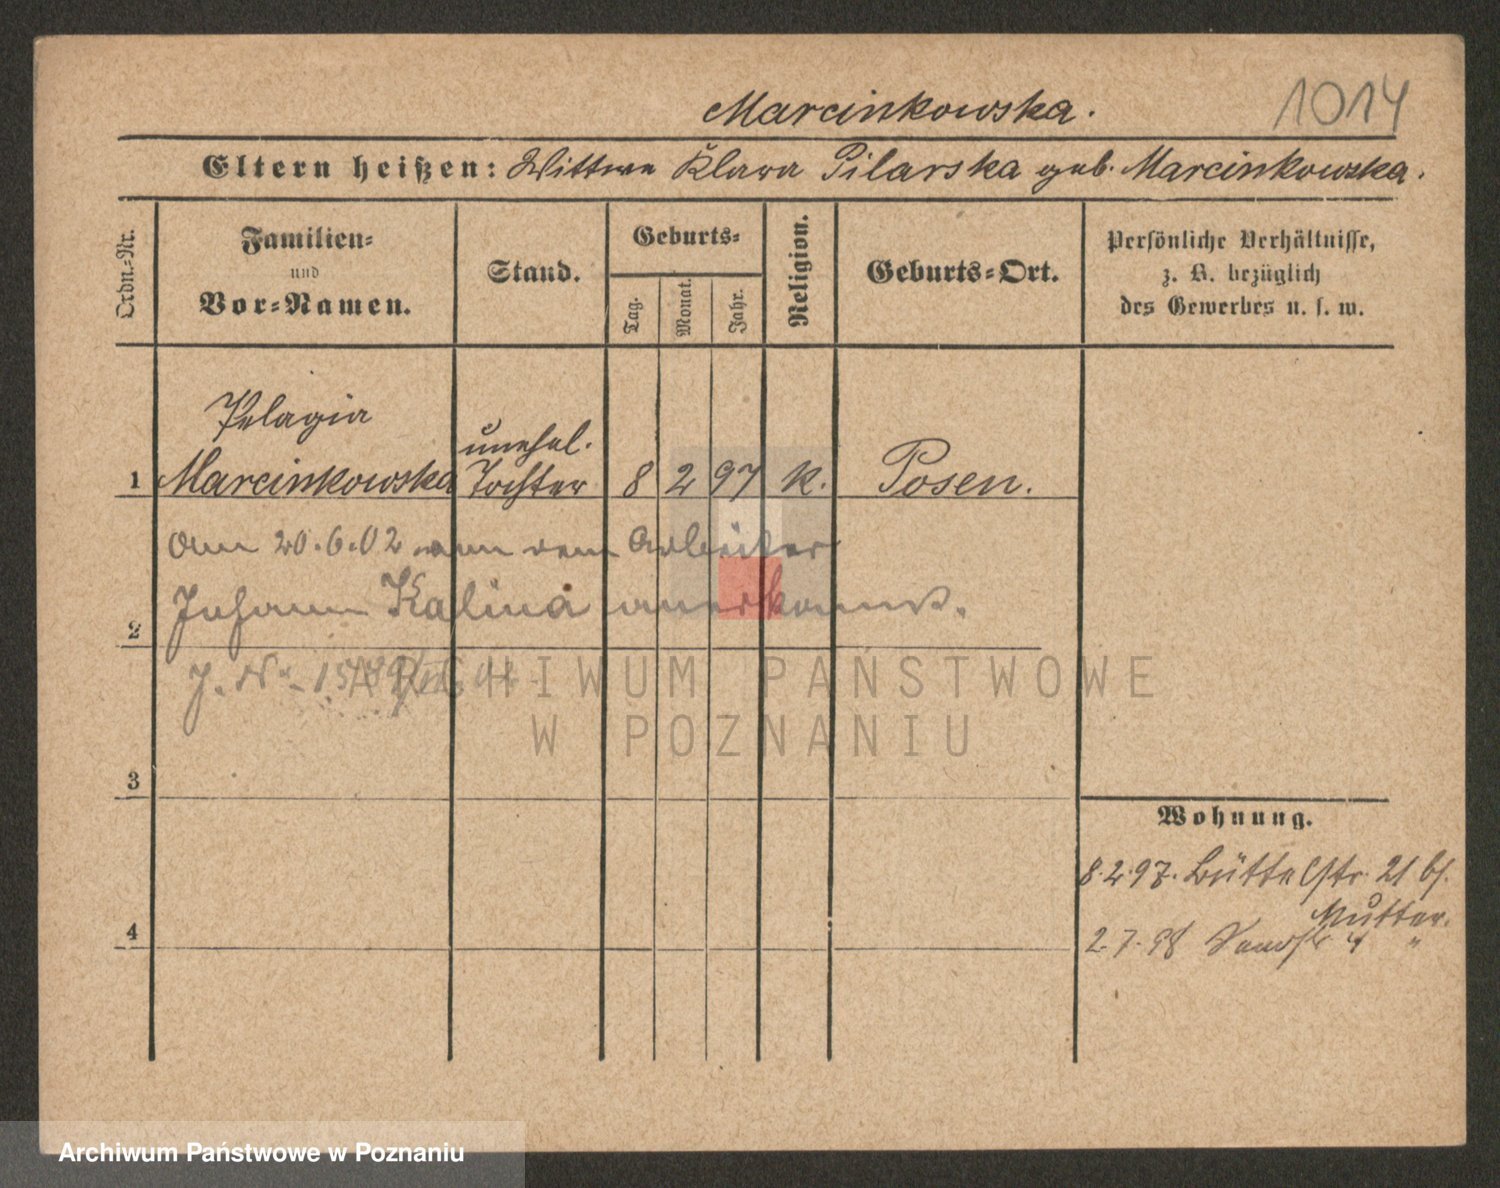 Marcinkowska.
1014
Eltern heißen: Wittwe Klara Pilarska geb. Marcinkowska.
Ordn.-Nr.
Familien-
und
Vor-Namen.
Stand.
Geburts-
Tag.
Monat.
Jahr.
Religion.
Geburts-Ort.
Persönliche Verhältnisse,
z. B. bezüglich
des Gewerbes u. s. w.
Pelagia
unehel.
1 Marcinkowska Tochter 8 2 97 k. Posen.
Am 20.6.02 von dem Arbeiter
Johann Kalina anerkannt.
2
J. Nr.
ARCHIWUM PAŃSTWOWE
W POZNANIU
3
Wohnung.
8.2.97. Büttelstr. 21 bf.
Mutter.
4
2.7.98 Sandstr 4 "
Archiwum Państwowe w Poznaniu